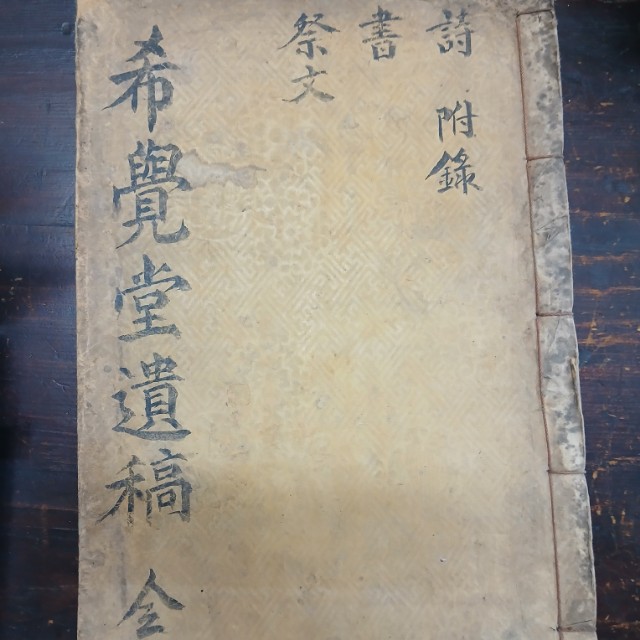 詩 附錄
書
祭文
希覺堂遺稿 全